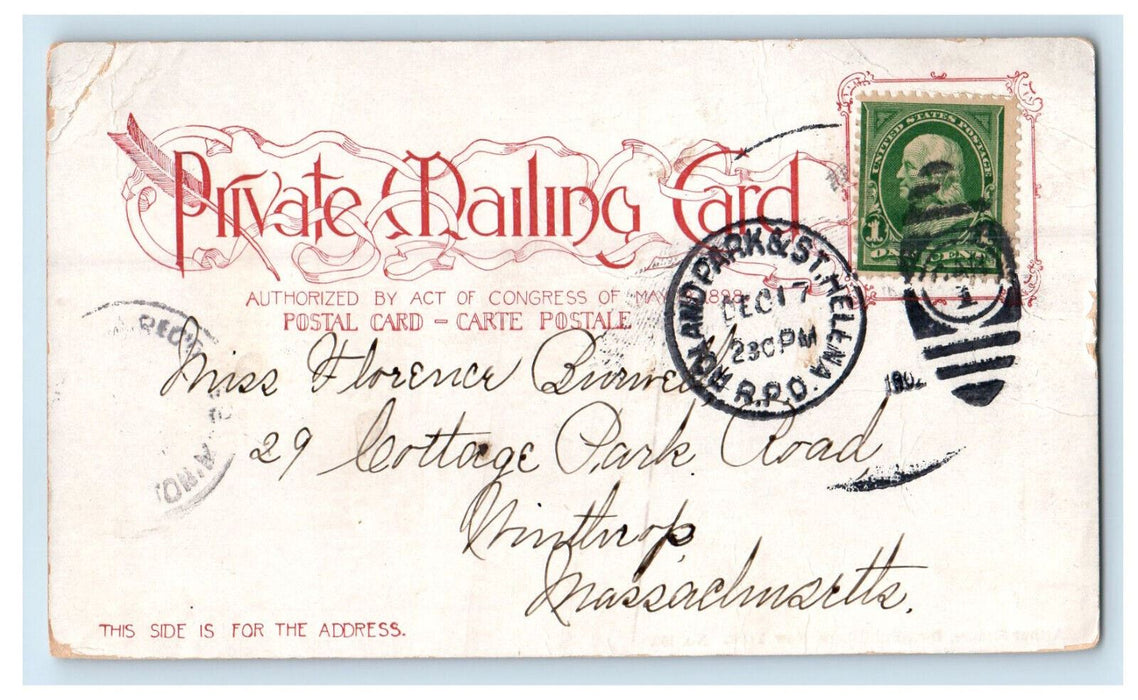 Private Mailing Card
AUTHORIZED BY ACT OF CONGRESS OF MAY 1898
POSTAL CARD - CARTE POSTALE
UNITED STATES POSTAGE
1
ONE CENT
ROLAND PARK & ST. HELENA. R.P.O.
DEC 17
230 PM
1
1902
REC'D
Miss Florence
29 Cottage Park Road
Winthrop
Massachusetts.
THIS SIDE IS FOR THE ADDRESS.